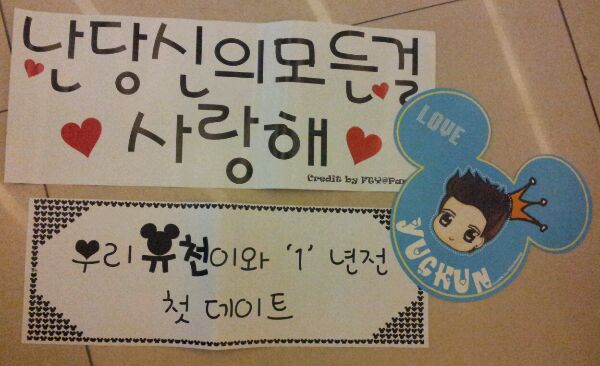 난당신의모든걸
사랑해
Credit by FTY@
LOVE
YUCKUN
우리 유천이와 '1' 년전
첫 데이트